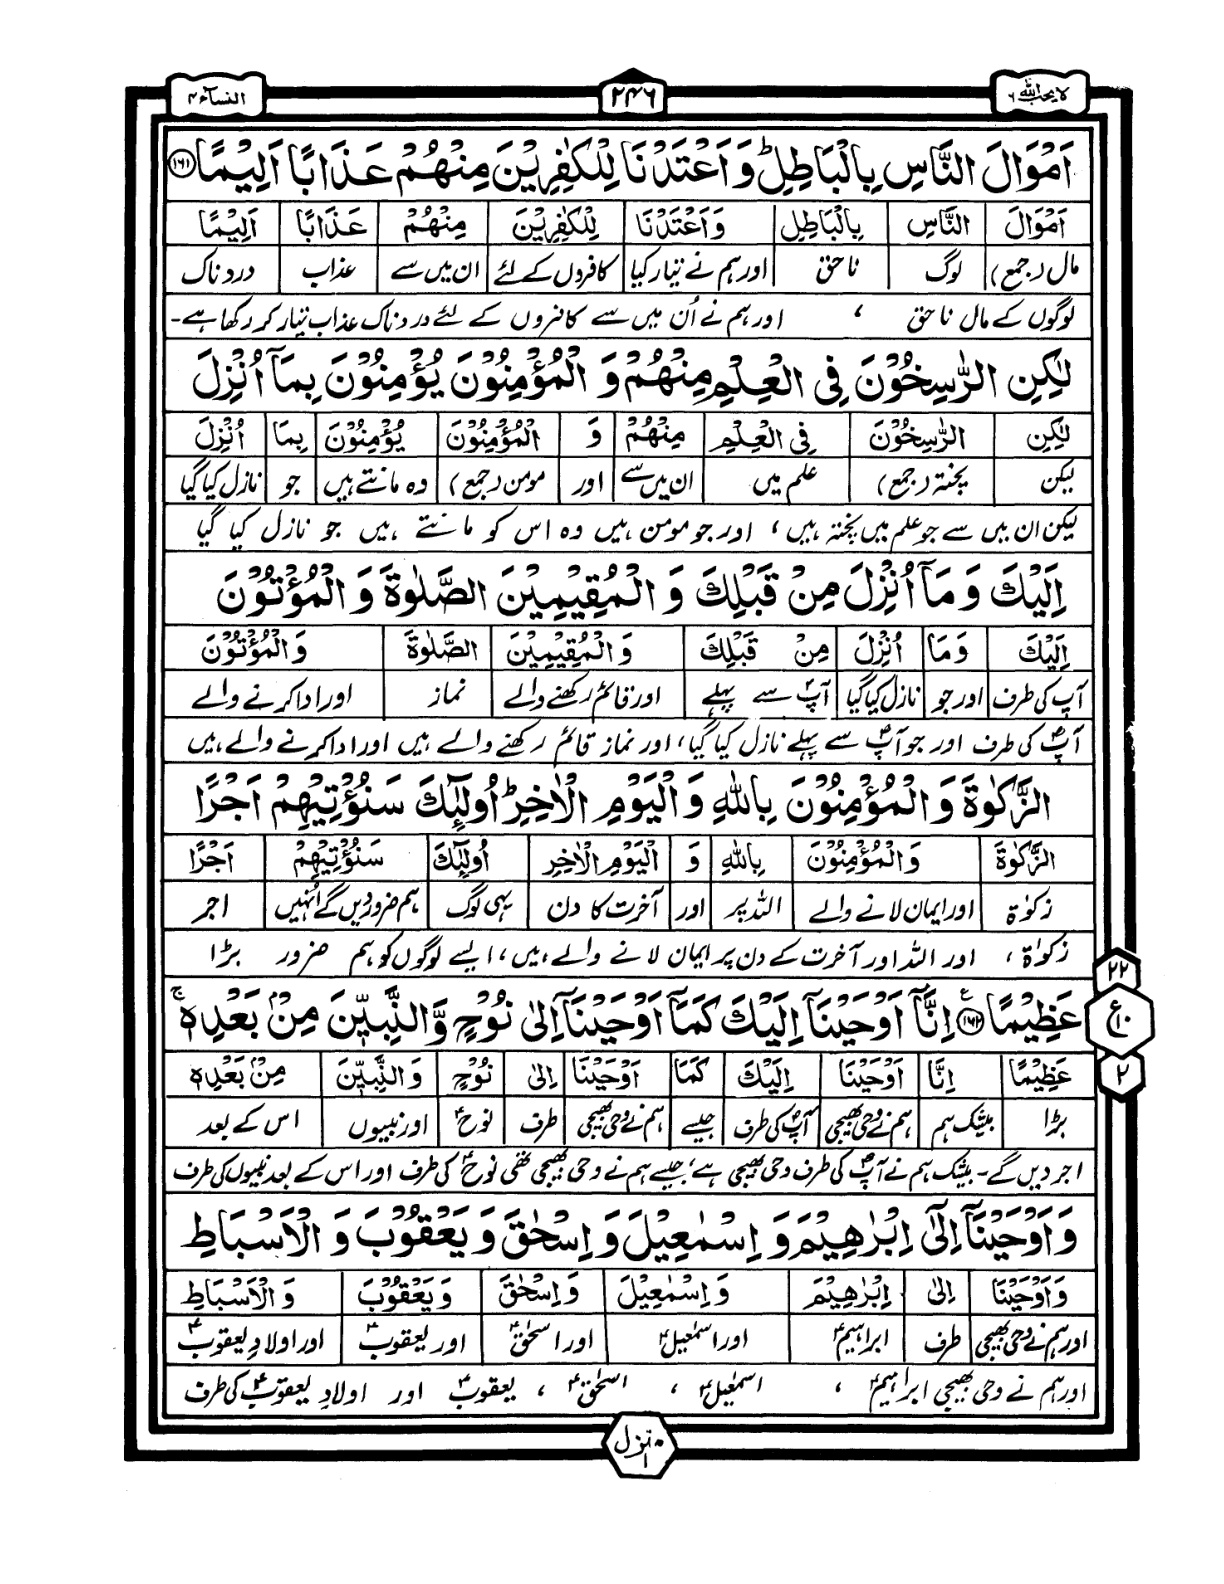 لا یحب اللہ ۶
۲۴۶
النسآء ۴
اَمْوَالَ النَّاسِ بِالْبَاطِلِ ؕ وَاَعْتَدْنَا لِلْكٰفِرِيْنَ مِنْهُمْ عَذَابًا اَلِيْمًا ۱۶۱
اَمْوَالَ النَّاسِ بِالْبَاطِلِ وَاَعْتَدْنَا لِلْكٰفِرِيْنَ مِنْهُمْ عَذَابًا اَلِيْمًا
مال (جمع) لوگ ناحق اور ہم نے تیار کیا کافروں کے لئے ان میں سے عذاب دردناک
لوگوں کے مال ناحق ، اور ہم نے اُن میں سے کافروں کے لئے دردناک عذاب تیار کر رکھا ہے۔
لٰكِنِ الرّٰسِخُوْنَ فِي الْعِلْمِ مِنْهُمْ وَ الْمُؤْمِنُوْنَ يُؤْمِنُوْنَ بِمَآ اُنْزِلَ
لٰكِنِ الرّٰسِخُوْنَ فِي الْعِلْمِ مِنْهُمْ وَ الْمُؤْمِنُوْنَ يُؤْمِنُوْنَ بِمَآ اُنْزِلَ
لیکن پختہ (جمع) علم میں ان میں سے اور مومن (جمع) وہ مانتے ہیں جو نازل کیا گیا
لیکن ان میں سے جو علم میں پختہ ہیں ، اور جو مومن ہیں وہ اس کو مانتے ہیں جو نازل کیا گیا
اِلَيْكَ وَ مَآ اُنْزِلَ مِنْ قَبْلِكَ وَ الْمُقِيْمِيْنَ الصَّلٰوةَ وَ الْمُؤْتُوْنَ
اِلَيْكَ وَ مَا اُنْزِلَ مِنْ قَبْلِكَ وَ الْمُقِيْمِيْنَ الصَّلٰوةَ وَ الْمُؤْتُوْنَ
آپ کی طرف اور جو نازل کیا گیا آپؐ سے پہلے اور قائم رکھنے والے نماز اور ادا کرنے والے
آپؐ کی طرف اور جو آپؐ سے پہلے نازل کیا گیا ، اور نماز قائم رکھنے والے ہیں اور ادا کرنے والے ہیں
الزَّكٰوةَ وَ الْمُؤْمِنُوْنَ بِاللّٰهِ وَ الْيَوْمِ الْاٰخِرِ ؕ اُولٰٓئِكَ سَنُؤْتِيْهِمْ اَجْرًا
الزَّكٰوةَ وَ الْمُؤْمِنُوْنَ بِاللّٰهِ وَ الْيَوْمِ الْاٰخِرِ اُولٰٓئِكَ سَنُؤْتِيْهِمْ اَجْرًا
زکوٰۃ اور ایمان لانے والے اللہ پر اور آخرت کا دن یہی لوگ ہم ضرور دیں گے اُنہیں اجر
زکوٰۃ ، اور اللہ اور آخرت کے دن پر ایمان لانے والے ہیں ، ایسے لوگوں کو ہم ضرور بڑا
۲۲
عَظِيْمًا ۱۶۲ ع اِنَّآ اَوْحَيْنَآ اِلَيْكَ كَمَآ اَوْحَيْنَآ اِلٰى نُوْحٍ وَّالنَّبِيّٖنَ مِنْۢ بَعْدِهٖ ۚ
ع ۱۰
عَظِيْمًا اِنَّآ اَوْحَيْنَآ اِلَيْكَ كَمَآ اَوْحَيْنَآ اِلٰى نُوْحٍ وَّالنَّبِيّٖنَ مِنْۢ بَعْدِهٖ
۲
بڑا بیشک ہم ہم نے وحی بھیجی آپؐ کی طرف جیسے ہم نے وحی بھیجی طرف نوحؑ اور نبیوں اس کے بعد
اجر دیں گے۔ بیشک ہم نے آپؐ کی طرف وحی بھیجی ہے ، جیسے ہم نے وحی بھیجی تھی نوحؑ کی طرف اور اس کے بعد نبیوں کی طرف
وَ اَوْحَيْنَآ اِلٰٓى اِبْرٰهِيْمَ وَ اِسْمٰعِيْلَ وَ اِسْحٰقَ وَ يَعْقُوْبَ وَ الْاَسْبَاطِ
وَ اَوْحَيْنَآ اِلٰى اِبْرٰهِيْمَ وَ اِسْمٰعِيْلَ وَ اِسْحٰقَ وَ يَعْقُوْبَ وَ الْاَسْبَاطِ
اور ہم نے وحی بھیجی طرف ابراہیمؑ اور اسمٰعیلؑ اور اسحٰقؑ اور یعقوبؑ اور اولادِ یعقوبؑ
اور ہم نے وحی بھیجی ابراہیمؑ ، اسمٰعیلؑ ، اسحٰقؑ ، یعقوبؑ اور اولادِ یعقوبؑ کی طرف
منزل ۱